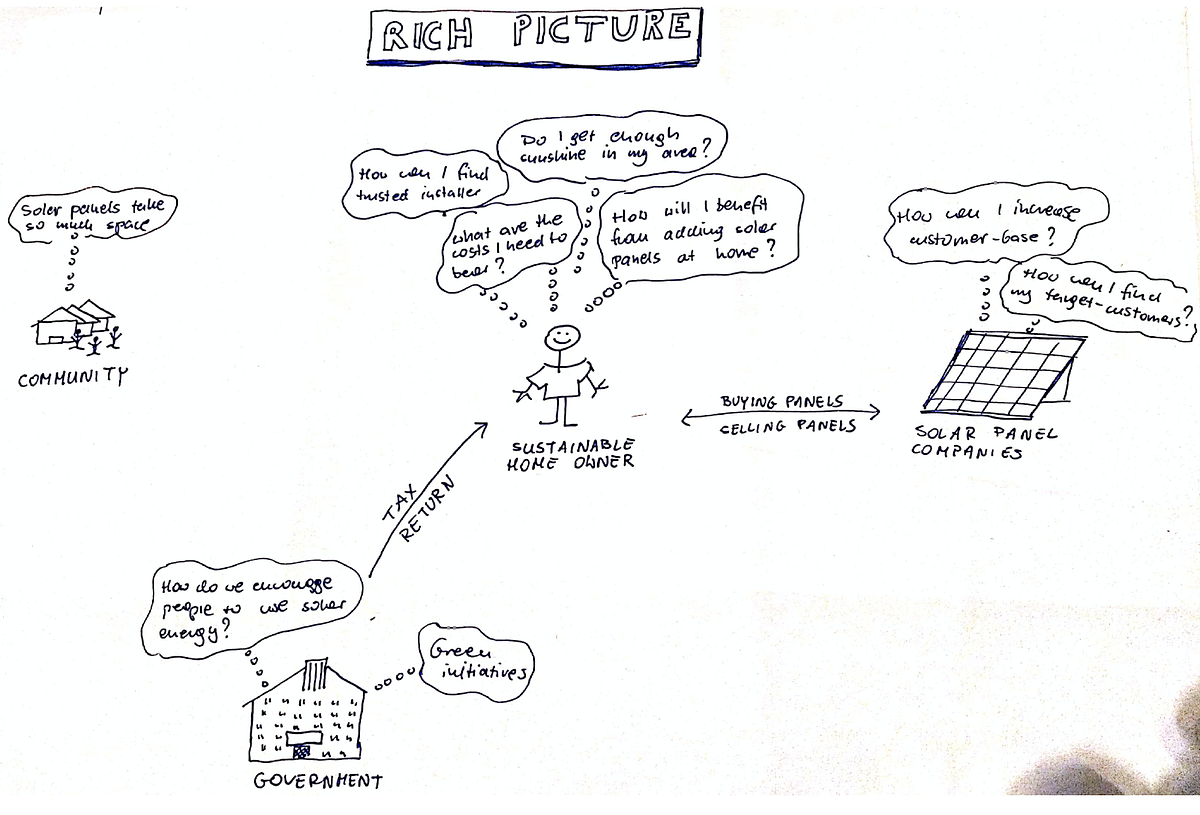 RICH PICTURE
Do I get enough
sunshine in my area?
How can I find
trusted installer
What are the
costs I need to
bear?
How will I benefit
from adding solar
panels at home?
Solar panels take
so much space
How can I increase
customer-base?
How can I find
my target-customers?
COMMUNITY
SUSTAINABLE
HOME OWNER
BUYING PANELS
SELLING PANELS
SOLAR PANEL
COMPANIES
TAX
RETURN
How do we encourage
people to use solar
energy?
Green
initiatives
GOVERNMENT